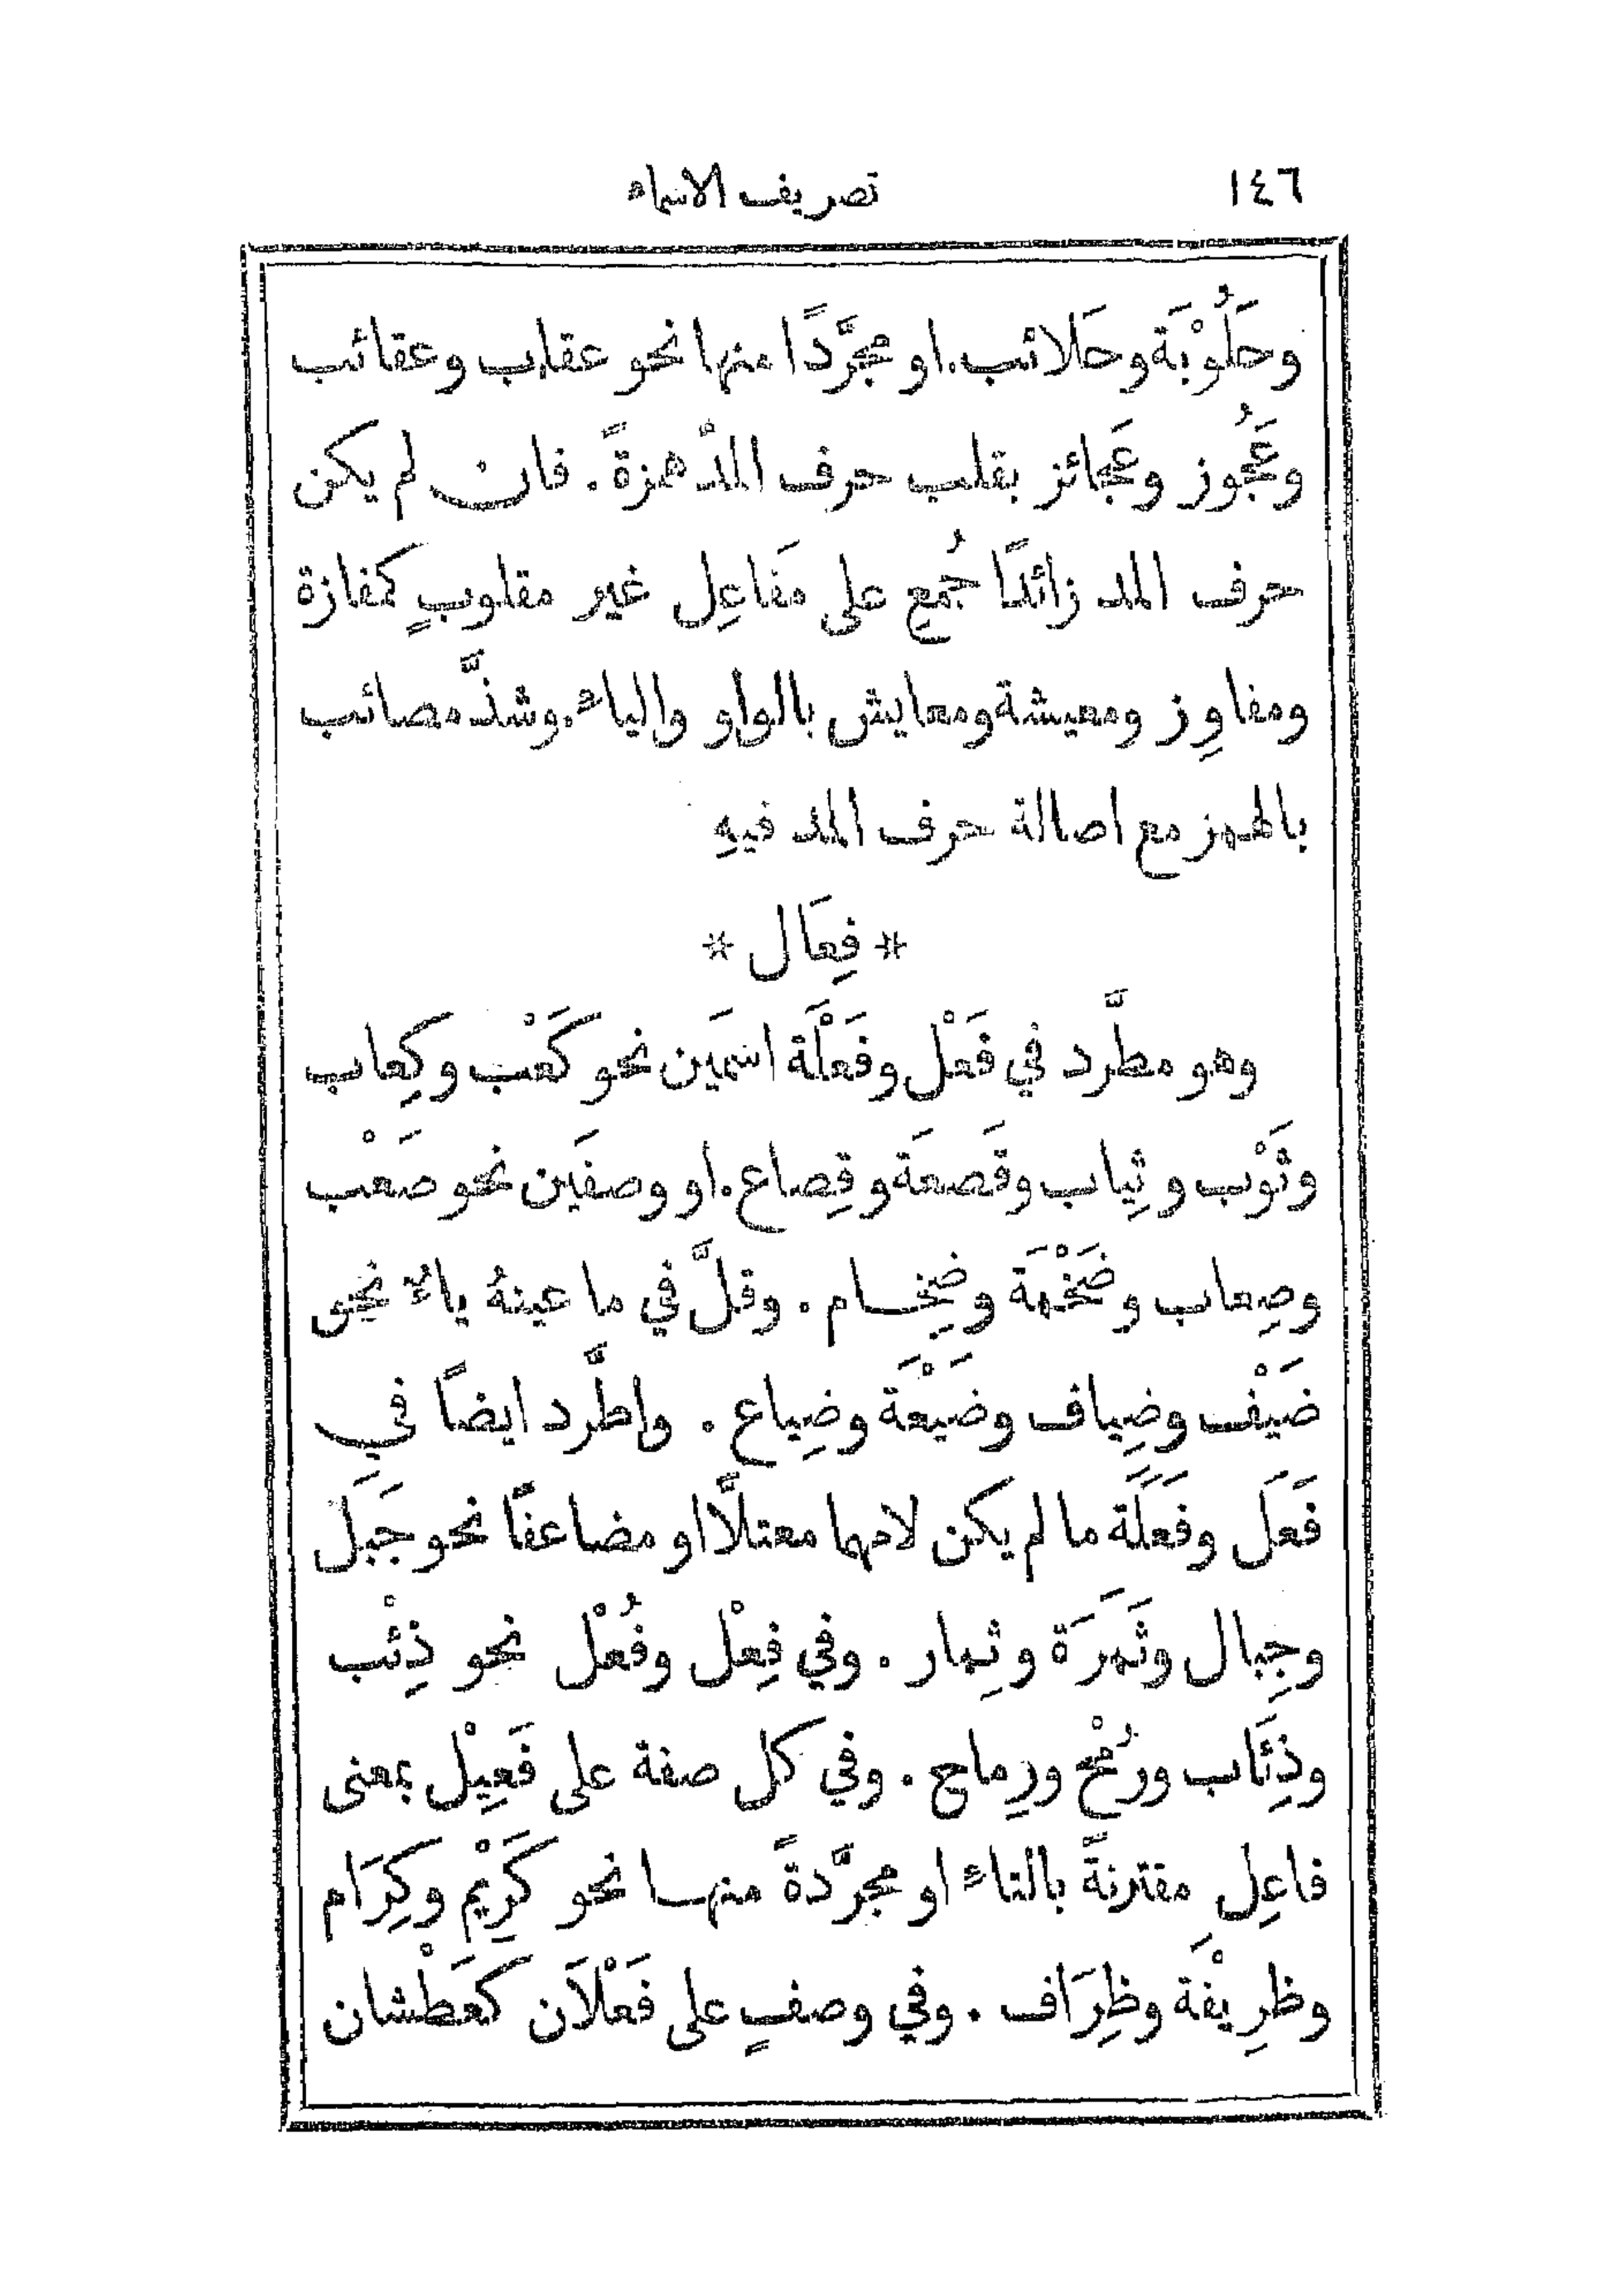 ١٤٦ تصريف الاسماء
وحَلُوْبَة وحَلائب. او مجرَّدًا منها نحو عقاب وعقائب
وعَجُوز وعَجائز بقلب حرف المدّ همزةً. فان لم يكن
حرف المد زائدًا جُمع على مَفاعِل غير مقلوبٍ كمفازة
ومفاوِز ومعيشة ومعايش بالواو والياء. وشذَّ مصائب
بالهمز مع اصالة حرف المد فيهِ
* فِعَال *
وهو مطَّرد في فَعْل وفَعْلَة اسمَين نحو كَعْب وكِعاب
وثَوْب وثِياب وقَصعَة وقِصاع. او وصفَين نحو صَعْب
وصِعاب وضَخْمَة وضِخام. وقلَّ في ما عينهُ ياءٌ نحو
ضَيْف وضِياف وضَيْعَة وضِياع. واطَّرد ايضًا في
فَعَل وفَعَلَة ما لم يكن لامهما معتلًّا او مضاعفًا نحو جَبَل
وجِبال وثَمَرَة وثِمار. وفي فِعْل وفُعْل نحو ذِئْب
وذِئَاب ورُمْح ورِماح. وفي كل صفة على فَعِيْل بمعنى
فاعِل مقترنةً بالتاء او مجرَّدةً منها نحو كَرِيْم وكِرَام
وظرِيْفَة وظِرَاف. وفي وصفٍ على فَعْلَان كعَطْشان